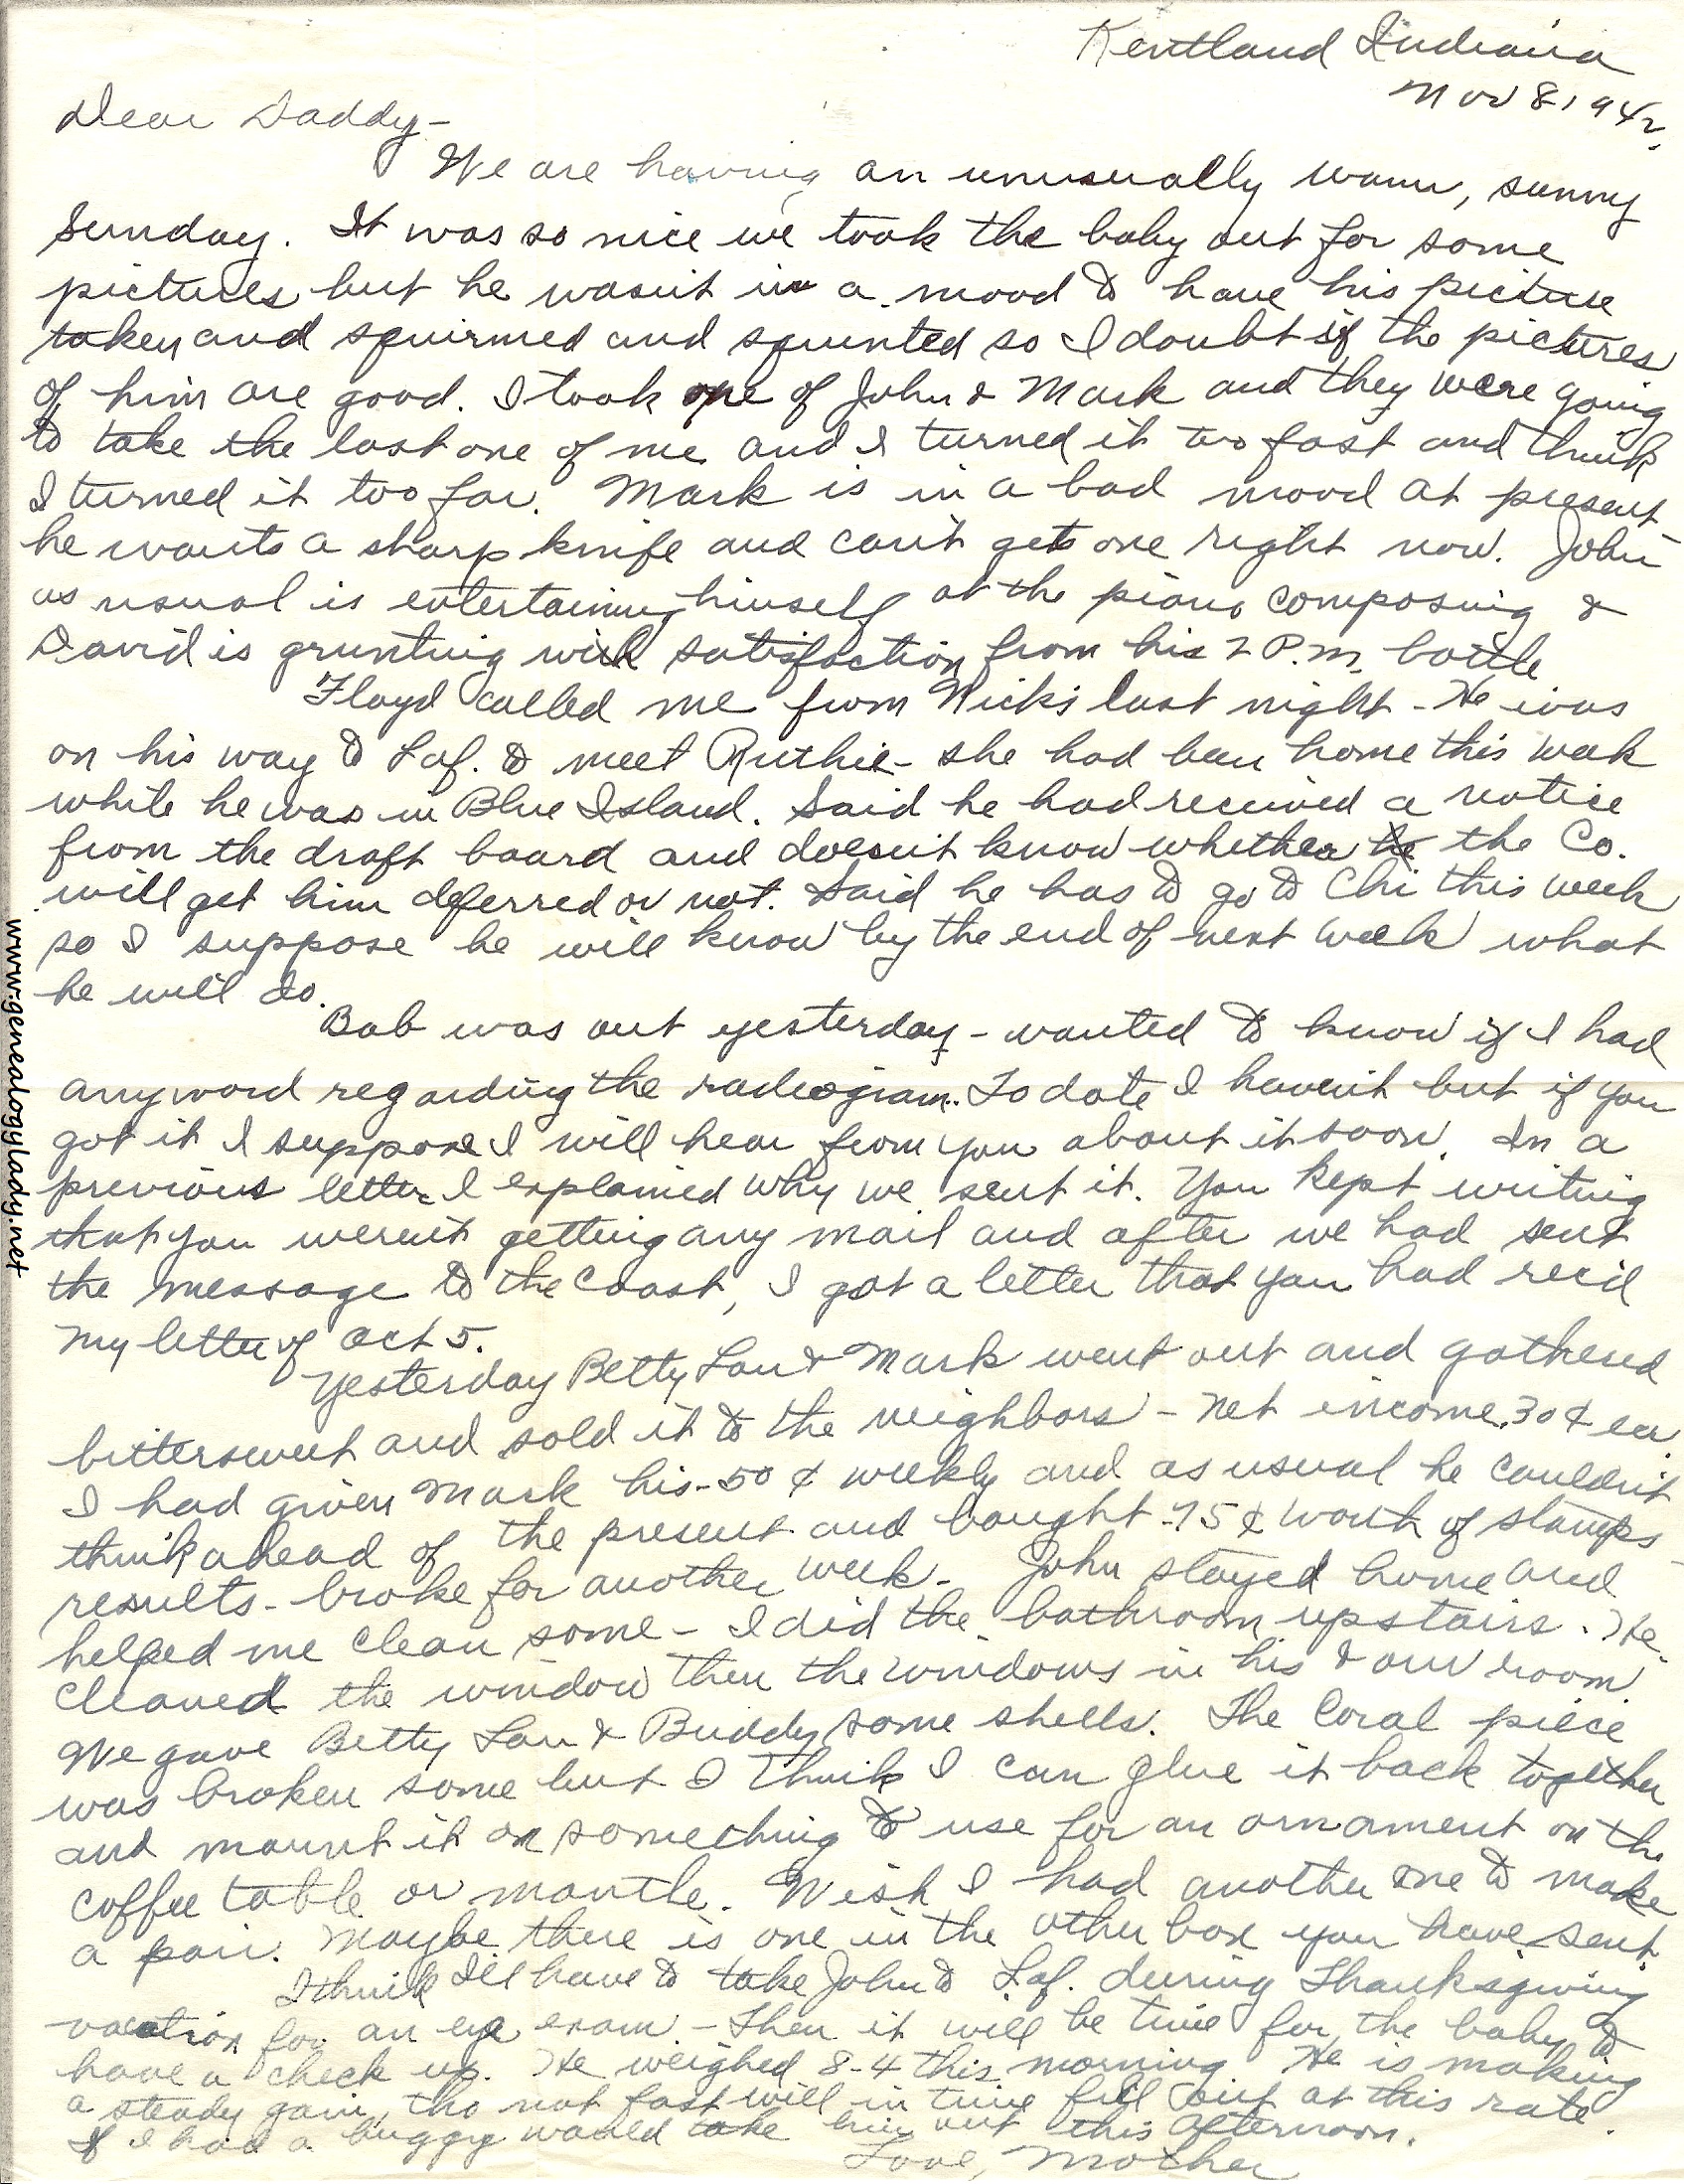 Kentland Indiana
Nov 8 1942.
Dear Daddy-
We are having an unusually warm, sunny
Sunday. It was so nice we took the baby out for some
pictures but he wasn't in a mood to have his picture
taken and squirmed and squinted so I doubt if the pictures
of him are good. I took one of John & Mark and they were going
to take the last one of me and I turned it too fast and think
I turned it too far. Mark is in a bad mood at present
he wants a sharp knife and can't get one right now. John
as usual is entertaining himself at the piano composing &
David is grunting with satisfaction from his 2 P.M. bottle
Floyd called me from Nick's last night - He was
on his way to Laf. to meet Ruthie - she had been home this week
while he was in Blue Island. Said he had received a notice
from the draft board and doesn't know whether the Co.
will get him deferred or not. Said he has to go to Chi this week
so I suppose he will know by the end of next week what
he will do.
Bob was out yesterday - wanted to know if I had
any word regarding the radiogram. To date I haven't but if you
got it I suppose I will hear from you about it soon. In a
previous letter I explained why we sent it. You kept writing
that you weren't getting any mail and after we had sent
the message to the coast, I got a letter that you had rec'd
my letter of Oct 5.
Yesterday Betty Lou & Mark went out and gathered
bittersweet and sold it to the neighbors - net income .30¢ ea.
I had given Mark his .50¢ weekly and as usual he couldn't
think ahead of the present and bought .75¢ worth of stamps -
results - broke for another week. John stayed home and
helped me clean some - I did the bathroom upstairs. He
cleaned the window then the windows in his & our room.
We gave Betty Lou & Buddy some shells. The Coral piece
was broken some but I think I can glue it back together
and mount it on something to use for an ornament on the
coffee table or mantle. Wish I had another one to make
a pair. Maybe there is one in the other box you have sent.
I think I'll have to take John to Laf. during Thanksgiving
vacation for an eye exam. - Then it will be time for the baby to
have a check up. He weighed 8-4 this morning. He is making
a steady gain, tho not fast will in time fill out at this rate.
If I had a buggy would take him out this afternoon.
Love, Mother
www.genealogylady.net